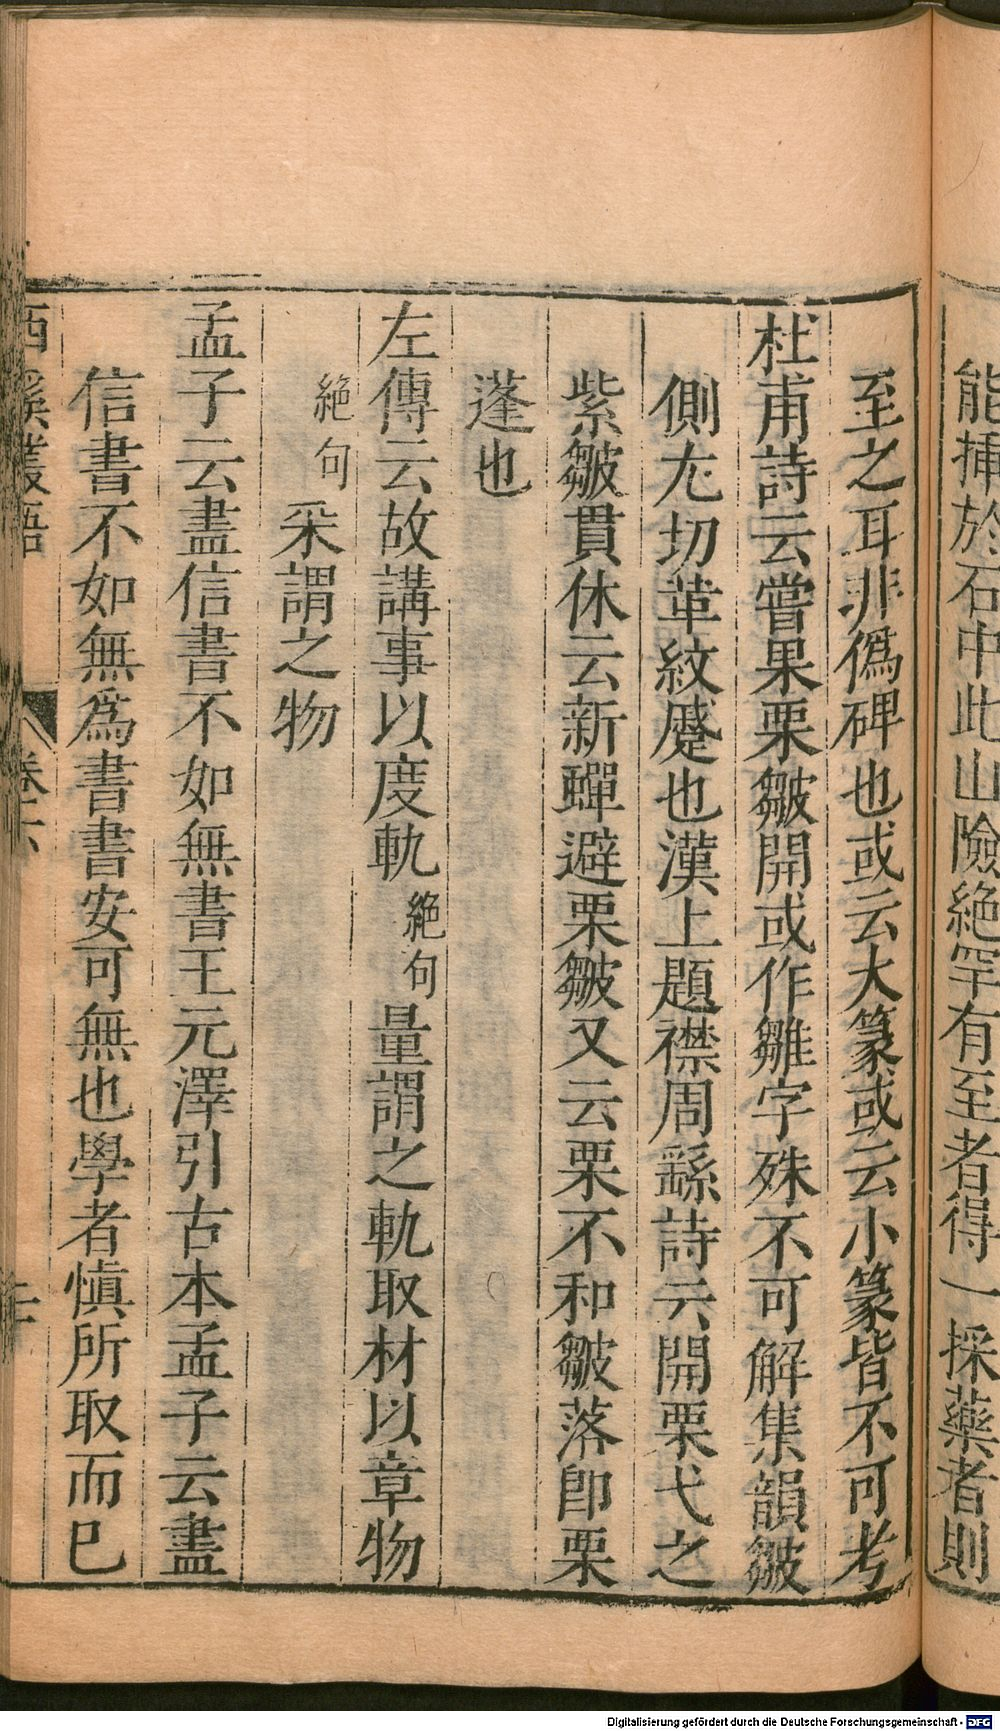 能插於石中此山險絶罕有至者得一採藥者則
至之耳非僞碑也或云大篆或云小篆皆不可考
杜甫詩云嘗果栗皺開或作雛字殊不可解集韻皺
側尤切革紋蹙也漢上題襟周繇詩云開栗弋之
紫皺貫休云新蟬避栗皺又云栗不和皺落即栗
蓬也
左傳云故講事以度軌絶句量謂之軌取材以章物
絶句采謂之物
孟子云盡信書不如無書王元澤引古本孟子云盡
信書不如無爲書書安可無也學者慎所取而巳
西溪叢語 卷六
Digitalisierung gefördert durch die Deutsche Forschungsgemeinschaft - DFG